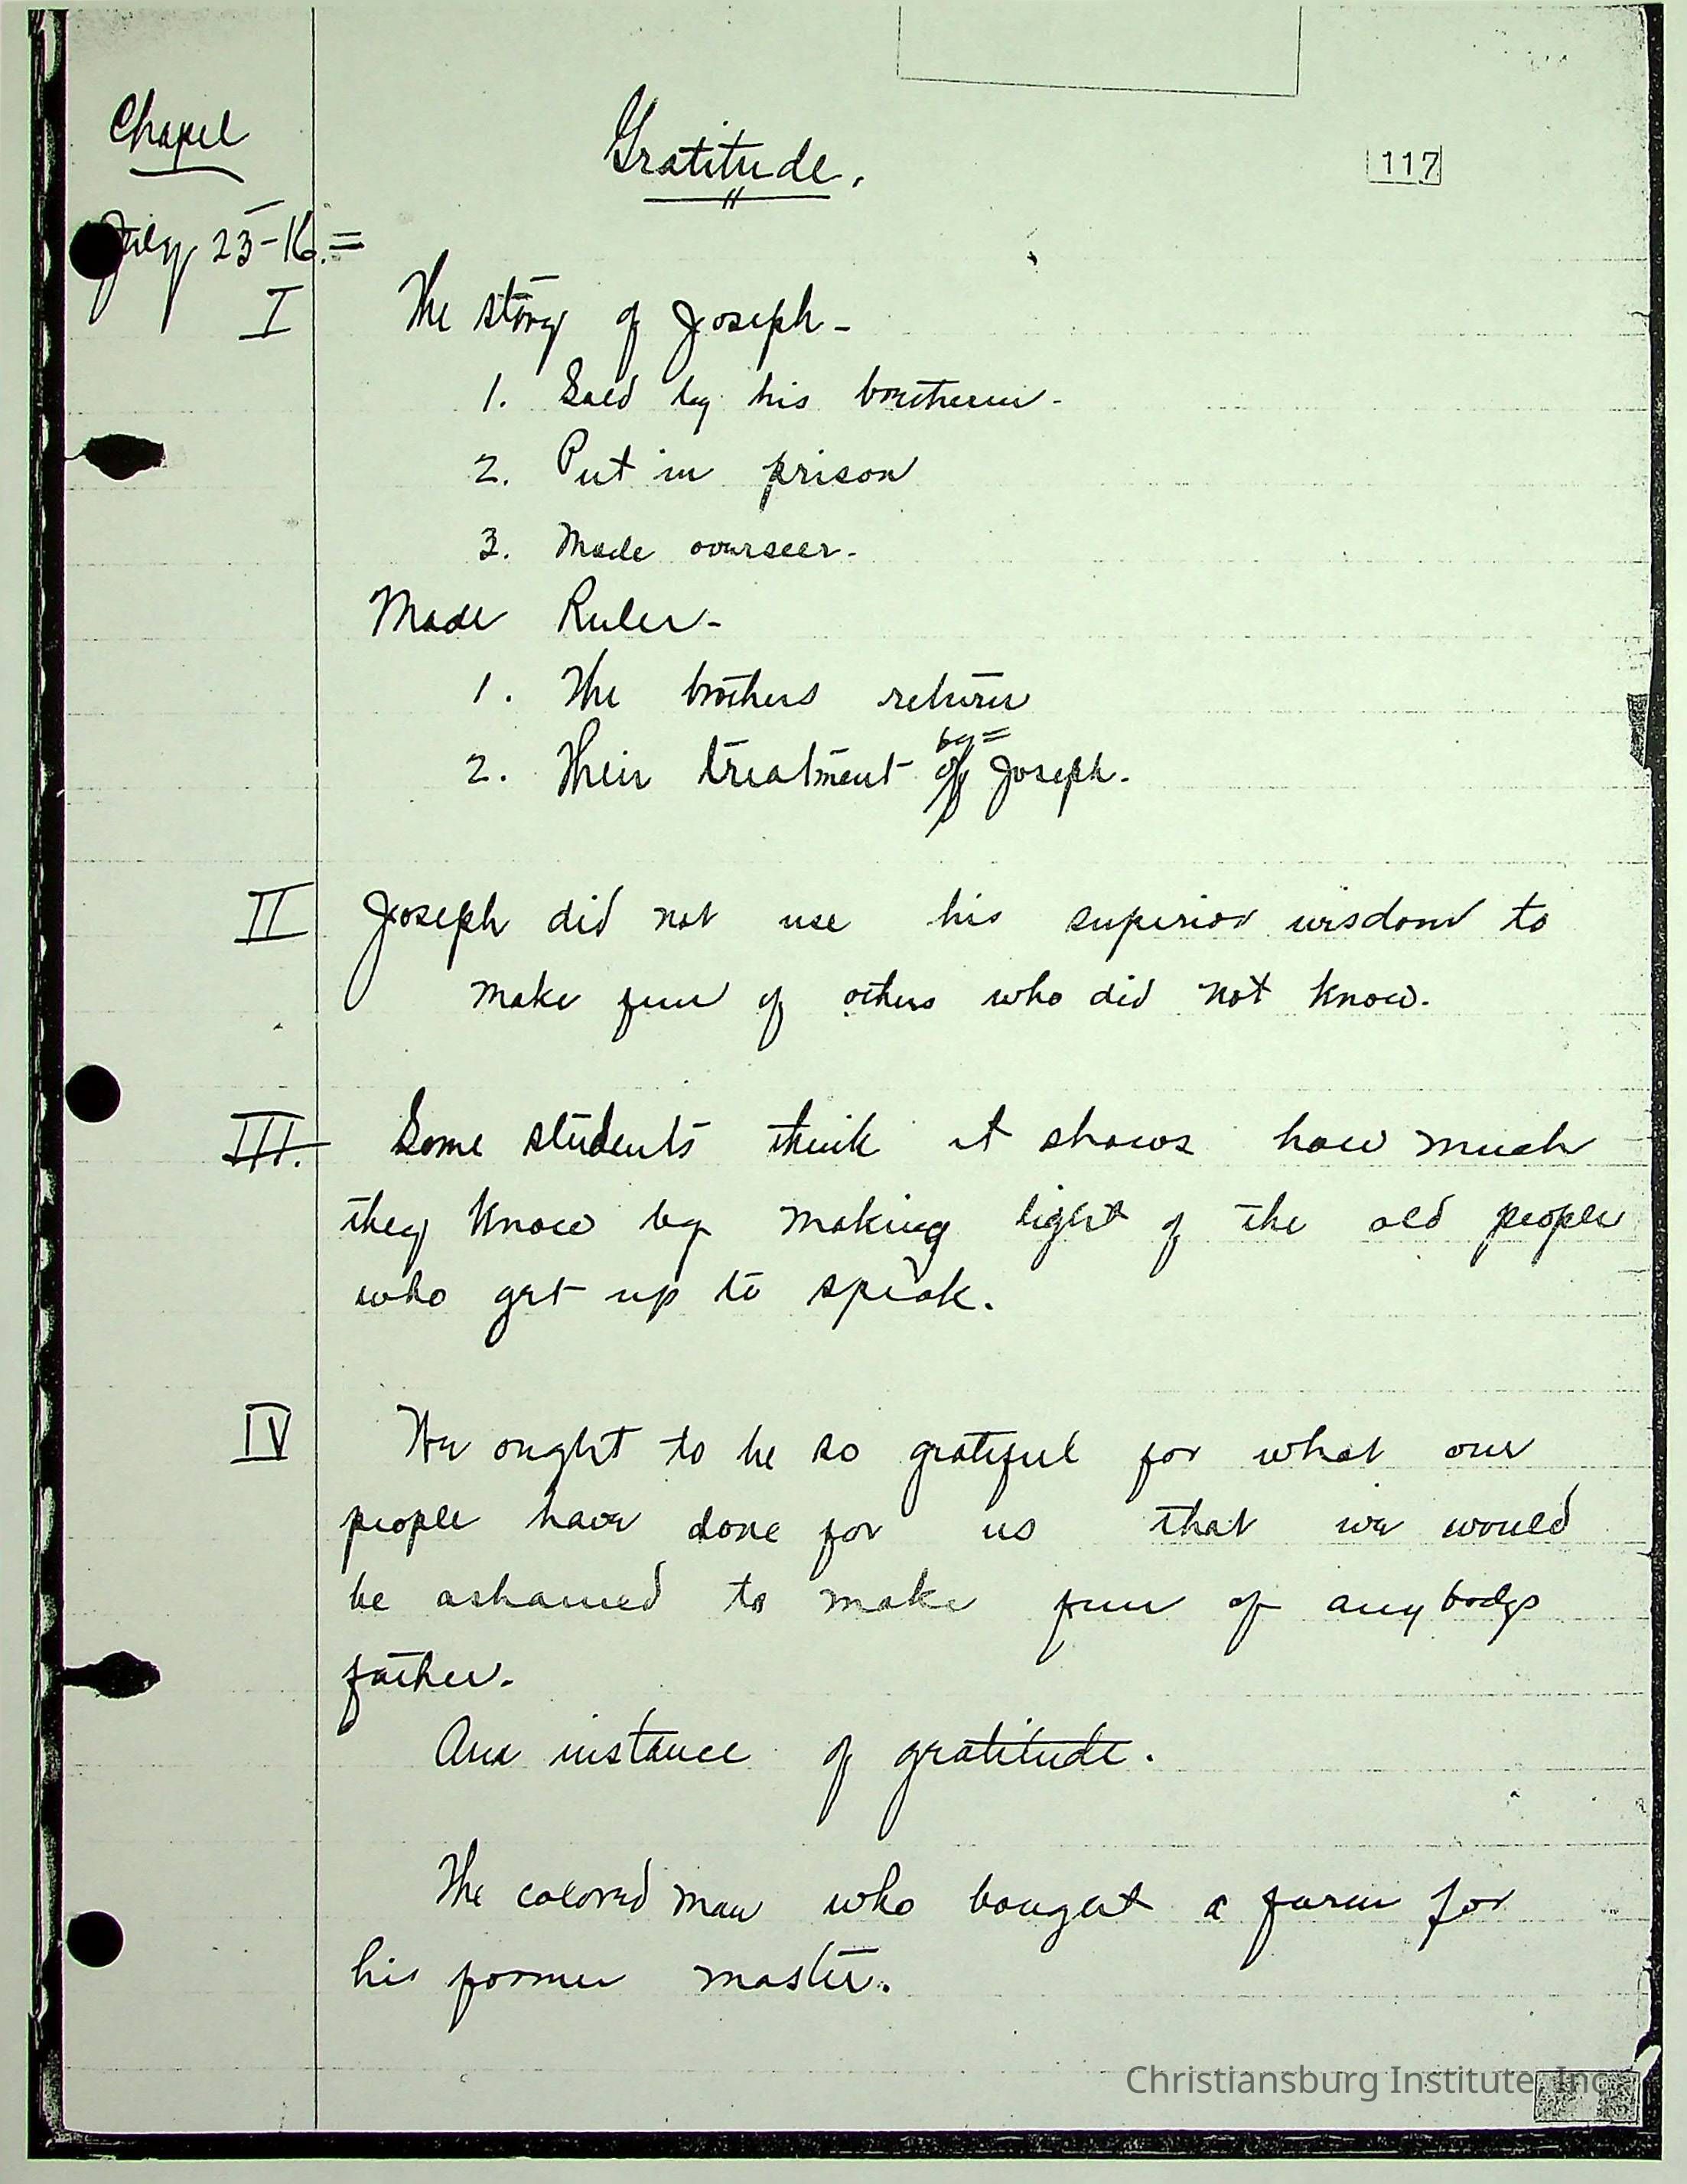 Chapel
Gratitude.
117
July 23-16.=
I The story of Joseph-
1. Sold by his bretheren-
2. Put in prison
3. Made overseer-
Made Ruler-
1. The brothers return
by=
2. Their treatment of Joseph.
II Joseph did not use his superior wisdom to
make fun of others who did not know.
III. Some students think it shows how much
they know by making light of the old people
who get up to speak.
IV We ought to be so grateful for what our
people have done for us that we would
be ashamed to make fun of any bodys
father.
An instance of gratitude.
The colored man who bought a farm for
his former master.
Christiansburg Institute, Inc.